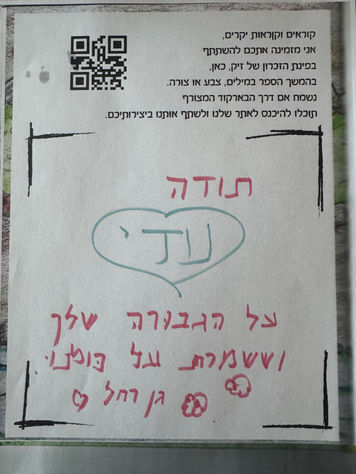 קוראים וקוראות יקרים,
אני מזמינה אתכם להשתתף
בפינת הזכרון של זיק, כאן,
בהמשך הספר במילים, צבע או צורה.
נשמח אם דרך הבארקוד המצורף
תוכלו להיכנס לאתר שלנו ולשתף אותנו ביצירותיכם.
תודה
עדי
על הגבורה שלך
וששמרת על כולנו
גן רחל